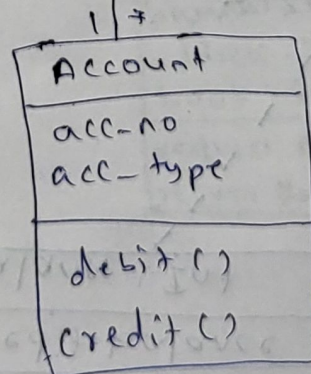 1 *
Account
acc-no
acc-type
debit()
credit()